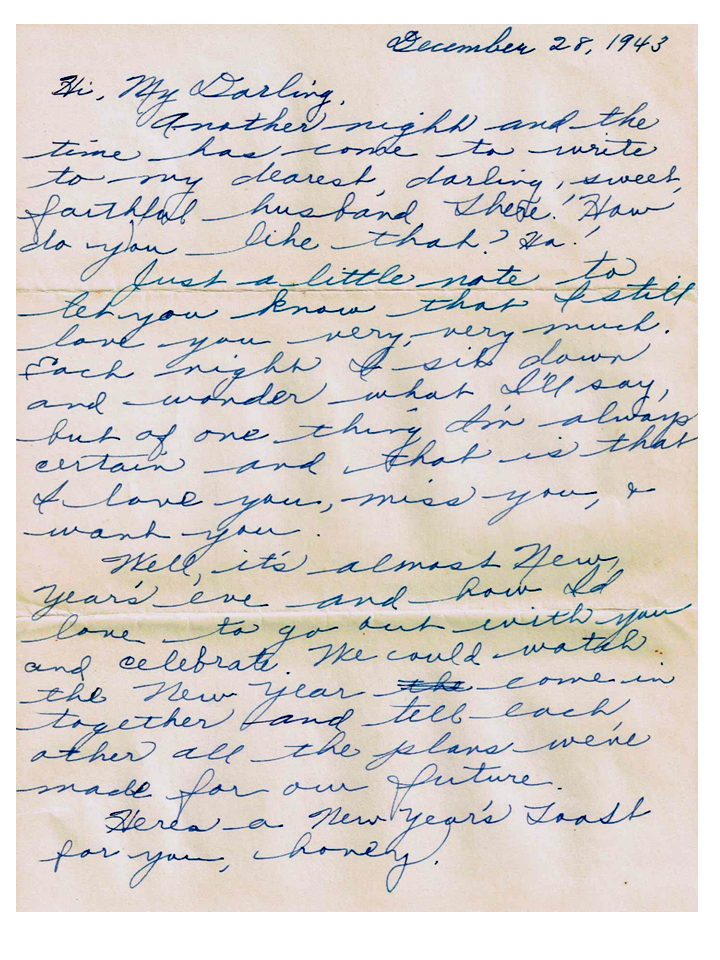 December 28, 1943
Hi, My Darling,
Another night and the
time has come to write
to my dearest, darling, sweet,
faithful husband. There! How
do you like that? Ha!
Just a little note to
let you know that I still
love you very, very much.
Each night I sit down
and wonder what I'll say,
but of one thing I'm always
certain and that is that
I love you, miss you, &
want you.
Well, it's almost New
Year's eve and how I'd
love to go out with you
and celebrate. We could watch
the New Year the come in
together and tell each
other all the plans we've
made for our future.
Heres a New Year's Toast
for you, honey.